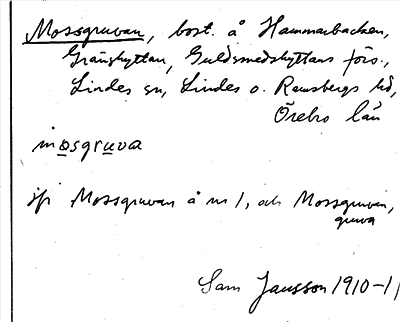 Mossgruvan, bost. å Hammarbacken,
Gränshyttan, Guldsmedshyttans förs.,
Lindes sn, Lindes o. Ramsbergs hd,
Örebro län
mosgruva
jfr Mossgruvan å nr 1, och Mossgruvan,
gruva
Sam Jansson 1910-11